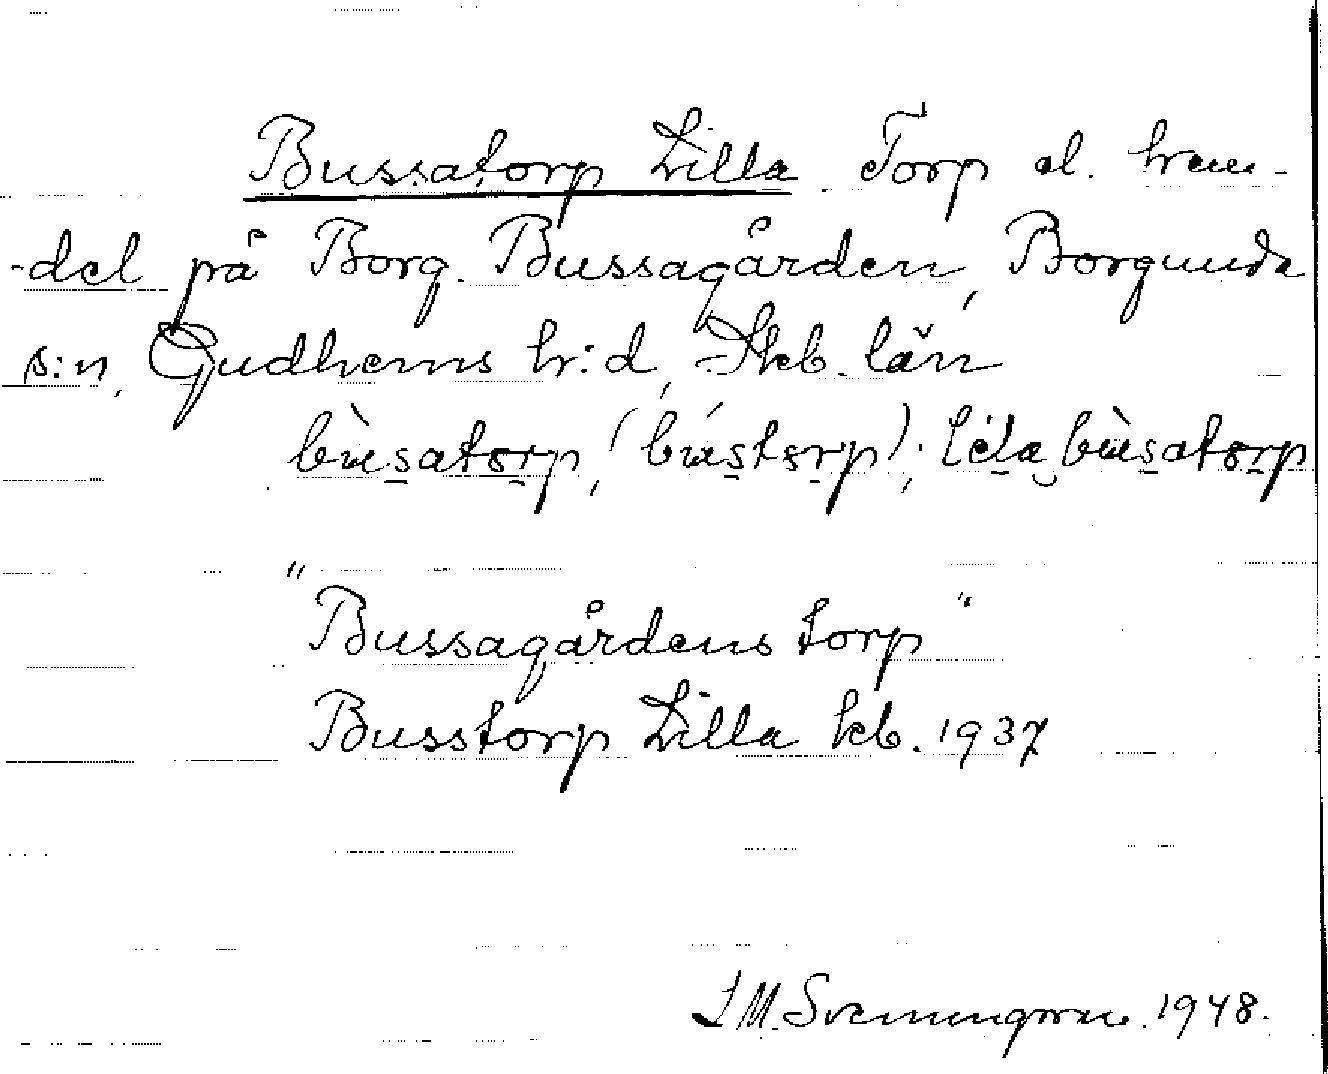 Bussatorp Lilla Torp el. hem-
-del på Borg. Bussagården, Borgunda
s:n, Gudhems h:d, Skb. län
bùsatorp, (bústorp); lela bùsatorp
"Bussagårdens torp"
Busstorp Lilla kb. 1937
I M. Svenungsson 1948.